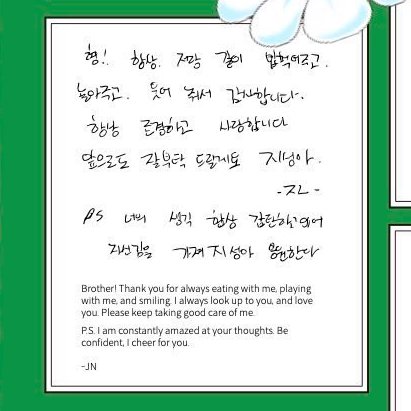 형! 항상 저랑 같이 밥먹어주고.
놀아주고. 웃어 줘서 감사합니다.
항상 존경하고 사랑합니다
앞으로도 잘부탁 드릴게요 지성아.
-JL-
PS 너의 생각 항상 감탄하고있어
자신감을 가져 지성아 응원한다
Brother! Thank you for always eating with me, playing
with me, and smiling. I always look up to you, and love
you. Please keep taking good care of me.
P.S. I am constantly amazed at your thoughts. Be
confident, I cheer for you.
-JN